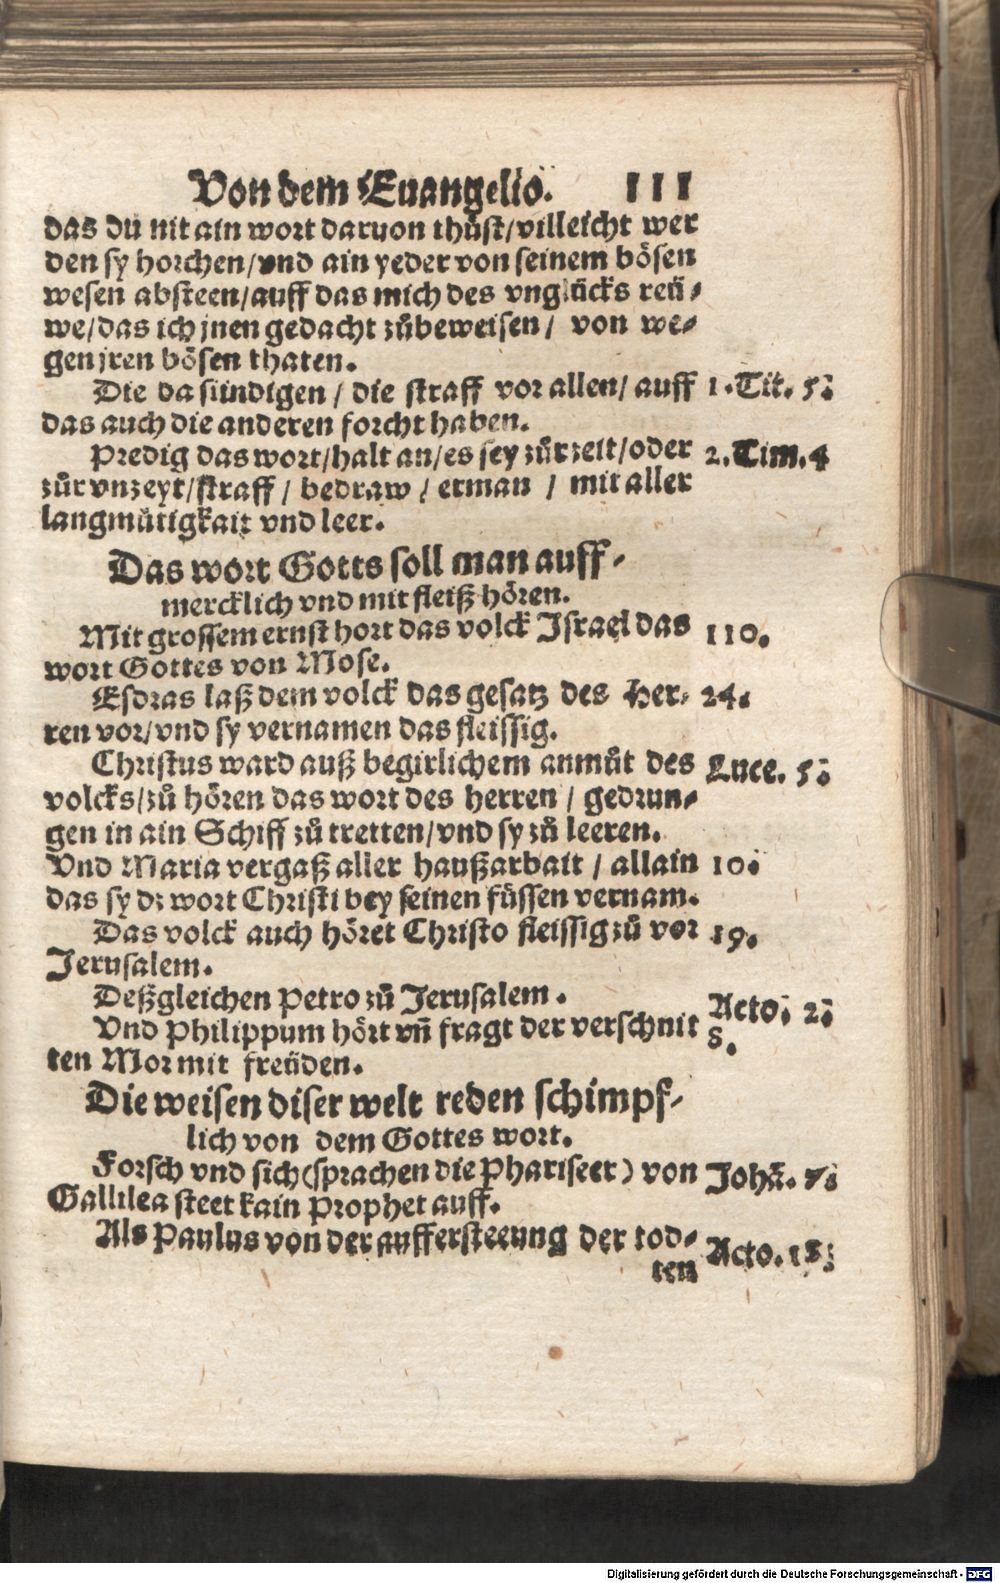 Von dem Euangelio. 111
das du nit ain wort daruon thuͦst/villeicht wer
den sy horchen/vnd ain yeder von seinem boͤsen
wesen absteen/auff das mich des vngluͤcks reuͤ-
we/das ich jnen gedacht zuͦbeweisen/ von we-
gen jren boͤsen thaten.
Die da sündigen / die straff vor allen/ auff 1. Tit. 5.
das auch die anderen forcht haben.
Predig das wort/halt an/es sey zuͦr zeit/oder 2. Tim. 4
zuͦr vnzeyt/straff / bedraw / erman / mit aller
langmuͤtigkait vnd leer.
Das wort Gotts soll man auff-
mercklich vnd mit fleiß hoͤren.
Mit grossem ernst hort das volck Israel das 110.
wort Gottes von Mose.
Esdras laß dem volck das gesatz des Her- 24.
ren vor/vnd sy vernamen das fleissig.
Christus ward auß begirlichem anmuͦt des Luce. 5.
volcks/zuͦ hoͤren das wort des herren / gedrun-
gen in ain Schiff zuͦ tretten/vnd sy zuͦ leeren.
Vnd Maria vergaß aller haußarbait / allain 10.
das sy dz wort Christi bey seinen fuͤssen vernam.
Das volck auch hoͤret Christo fleissig zuͦ vor 19.
Jerusalem.
Deßgleichen Petro zuͦ Jerusalem.
Acto. 2.
Vnd Philippum hoͤrt vñ fragt der verschnit 8.
ten Mor mit freuͤden.
Die weisen diser welt reden schimpf-
lich von dem Gottes wort.
Forsch vnd sich (sprachen die Phariseer) von Johã. 7.
Gallilea steet kain Prophet auff.
Als Paulus von der auffersteeung der tod- Acto. 18.
ten
Digitalisierung gefördert durch die Deutsche Forschungsgemeinschaft - DFG